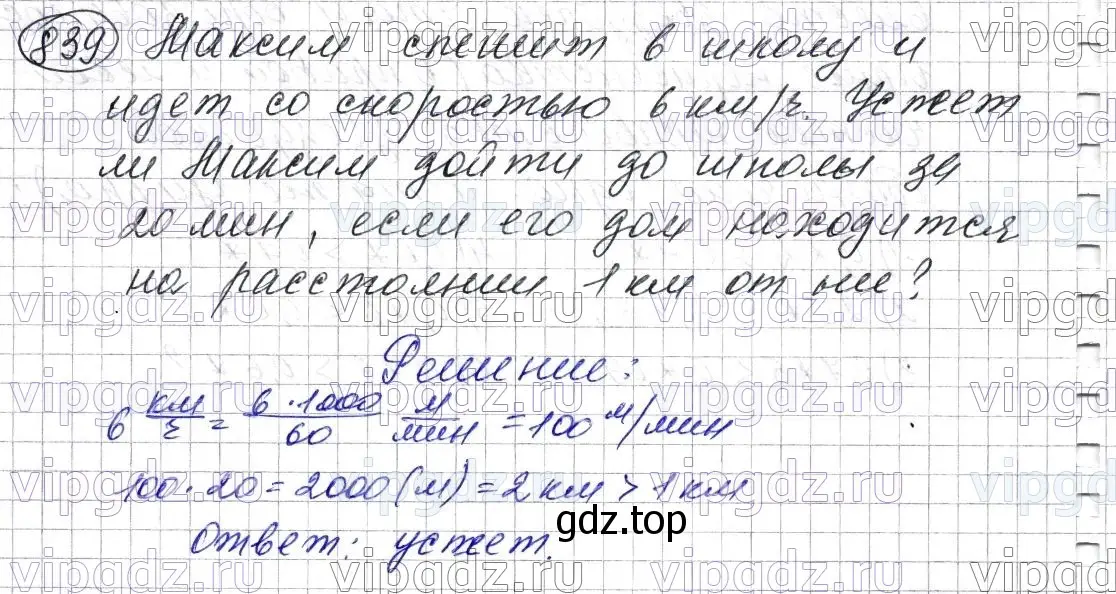 839 Максим спешит в школу и
идет со скоростью 6 км/ч. Успеет
ли Максим дойти до школы за
20 мин, если его дом находится
на расстоянии 1 км от нее?
Решение:
6 км/ч = 6·1000/60 м/мин = 100 м/мин
100·20 = 2000 (м) = 2 км > 1 км
Ответ: успеет.
gdz.top
vipgdz.ru